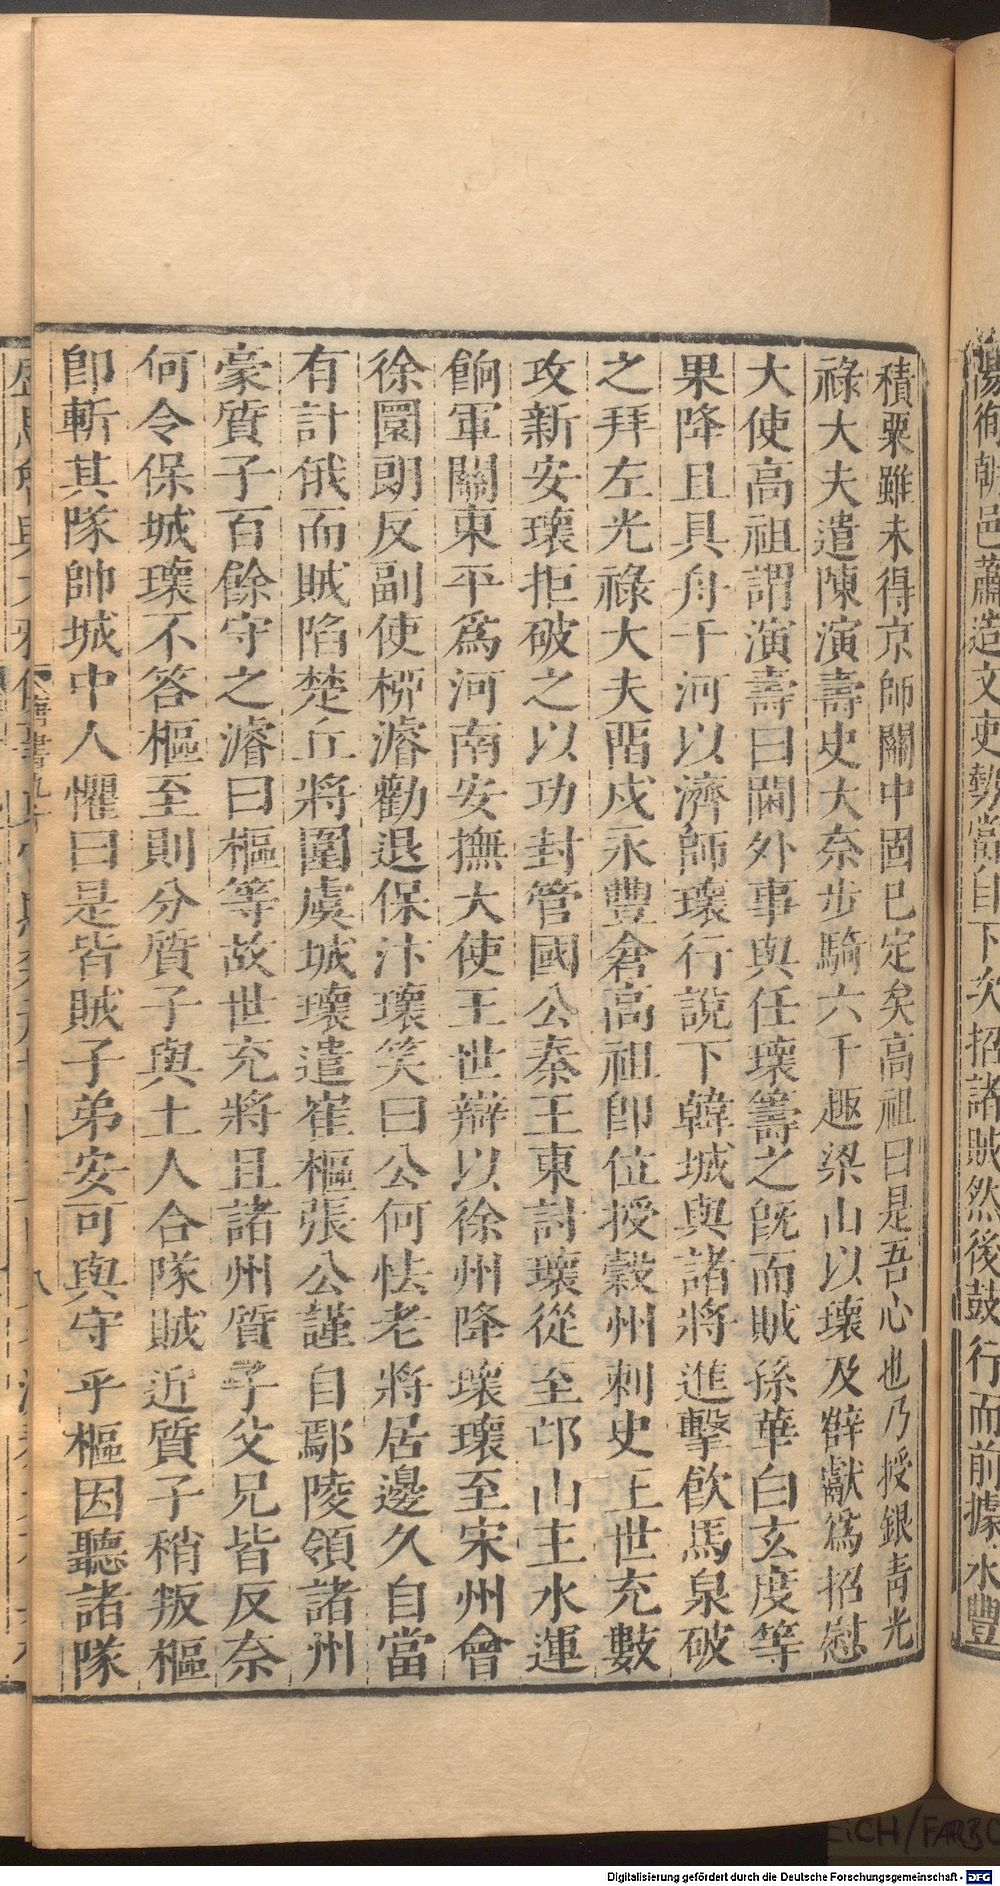 陽徇朝邑蕭造文吏勢當自下次招諸賊然後鼓行而前據永豐
積粟雖未得京師關中固已定矣高祖曰是吾心也乃授銀青光
祿大夫遣陳演壽史大奈步騎六千趣梁山以瓌及薛獻爲招慰
大使高祖謂演壽曰閫外事與任瓌籌之旣而賊孫華白玄度等
果降且具舟于河以濟師瓌行說下韓城與諸將進擊飮馬泉破
之拜左光祿大夫畱戍永豐倉高祖卽位授穀州刺史王世充數
攻新安瓌拒破之以功封管國公秦王東討瓌從至邙山主水運
餉軍關東平爲河南安撫大使王世辯以徐州降瓌瓌至宋州會
徐圓朗反副使桺濬勸退保汴瓌笑曰公何怯老將居邊久自當
有計俄而賊陷楚丘將圍虞城瓌遣崔樞張公謹自鄢陵領諸州
豪質子百餘守之濬曰樞等故世充將且諸州質子父兄皆反奈
何令保城瓌不答樞至則分質子與土人合隊賊近質子稍叛樞
卽斬其隊帥城中人懼曰是皆賊子弟安可與守乎樞因聽諸隊
唐書九十
八
Digitalisierung gefördert durch die Deutsche Forschungsgemeinschaft - DFG